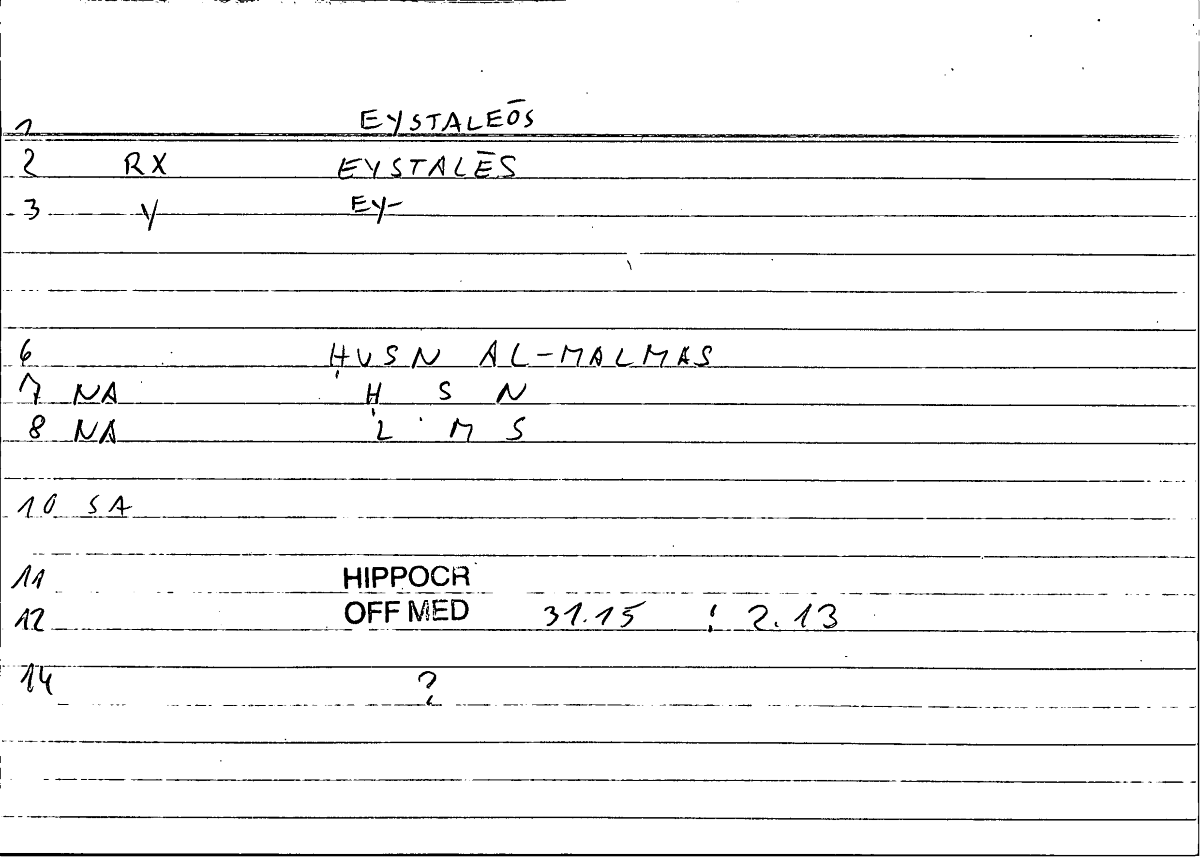 1 EYSTALEŌS
2 RX EYSTALĒS
3 Y EY-
6 ḤUSN AL-MALMAS
7 NA Ḥ S N
8 NA L M S
10 SA
11 HIPPOCR
12 OFF MED 31.15 ; 2.13
14 ?